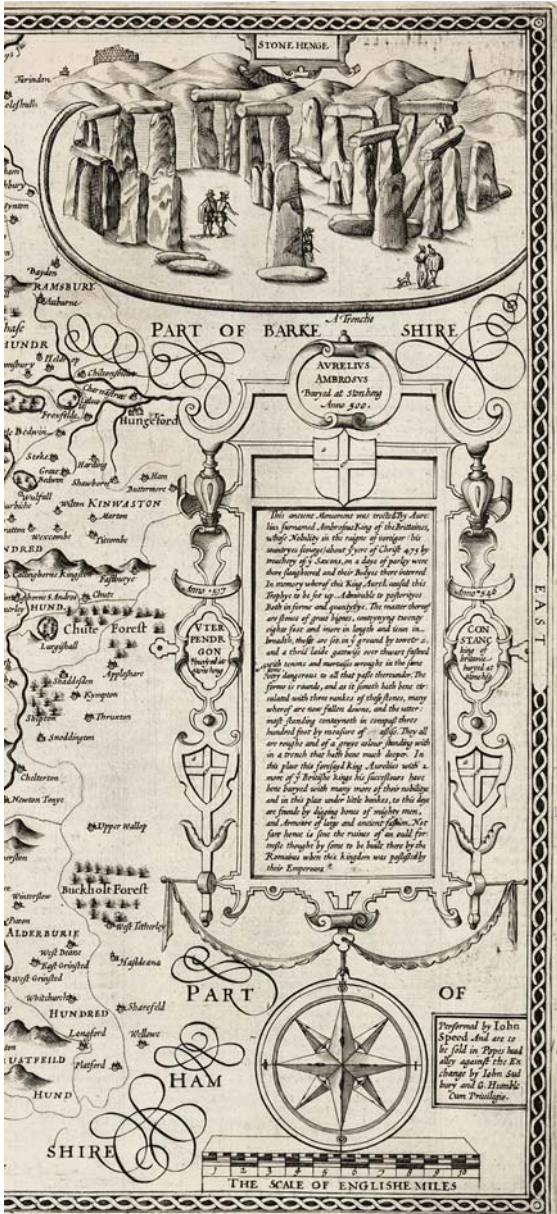 STONE HENGE
Farindon
Bayden
RAMSBURY
Auburne
A Trenche
PART OF BARKE SHIRE
HUNDR
Chilsenfolde
Charnastrete
Hungerford
Froxfelde
Bedwin
Stoke
Harding
Grete
Bedwin
Shawborn
Ham
Buttermere
Wulfall
Wilton
KINWASTON
Marton
Wexcombe
Titcombe
NDRED
Collingborne Kingston
Fastburye
HUND.
Chute
Chute Forest
Lurgishall
Appleshare
Shaddesden
Kympton
Skipton
Thruxton
Snoddington
Chelterton
Newton Tonye
Vpper Wallop
Winterslow
Buckholt Forest
West Tetherley
ALDERBURIE
West Deane
East Grinsted
Hasldeana
West Grinsted
Whitchurch
HUNDRED
Sharefeld
Langford
Wellowe
USTFEILD
Platford
HUND
AVRELIVS
AMBROSVS
Buryed at Stonheng
Anno 500.
Anno 517
VTER
PENDR
GON
Buryed at
Stonheng
Anno 546
CON
STANC
king of
britanie
buryed at
stonehēg
This ancient Monument was erected By Aure
lius surnamed Ambrosius King of the Brittaines,
whose Nobility in the raigne of vortiger (his
countryes scourge) about yͤ yere of Christ 475 by
treachery of yͤ Saxons, on a daye of parley were
there slaughtered and their Bodyes there interred
In memory wherof this King Aurel. caused this
Trophye to be set up. Admirable to posterityes
Both in forme and quantytye. The matter therof
are stones of great bignes, conteynyng twenty
eight foot and more in length and tenn in
breadth, these are set in yͤ ground by twoe's &,
and a third laide gatewise over thwart fastned
with tenons and mortaises wrought in the same
stone
very dangerous to all that passe thereunder. The
forme is rounde, and as it semeth hath bene cir
culated with three rankes of these stones, many
wherof are now fallen downe, and the utter:
most standing conteyneth in compass three
hundred foot by measure of assise. They all
are roughe and of a graye colour standing with
in a trench that hath bene much deeper. In
this place this foresayd king Aurelius with 2
more of yͤ Brittishe kings his successours have
bene buryed with many more of their nobilitye
and in this place under little bankes, to this daye
are founde by digging bones of mighty men,
and Armoure of large and ancient fashion. Not
farr hence is sene the ruines of an ould for:
tresse thought by some to be built there by the
Romaines when this kingdom was possessed by
their Emperours
EAST
PART OF
HAM
SHIRE
Performed by Iohn
Speed And are to
be sold in Popes head
alley against the Ex
change by Iohn Sud
bury and G. Humble
Cum Privilegio.
1 2 3 4 5 6 7 8 9 10
THE SCALE OF ENGLISHE MILES